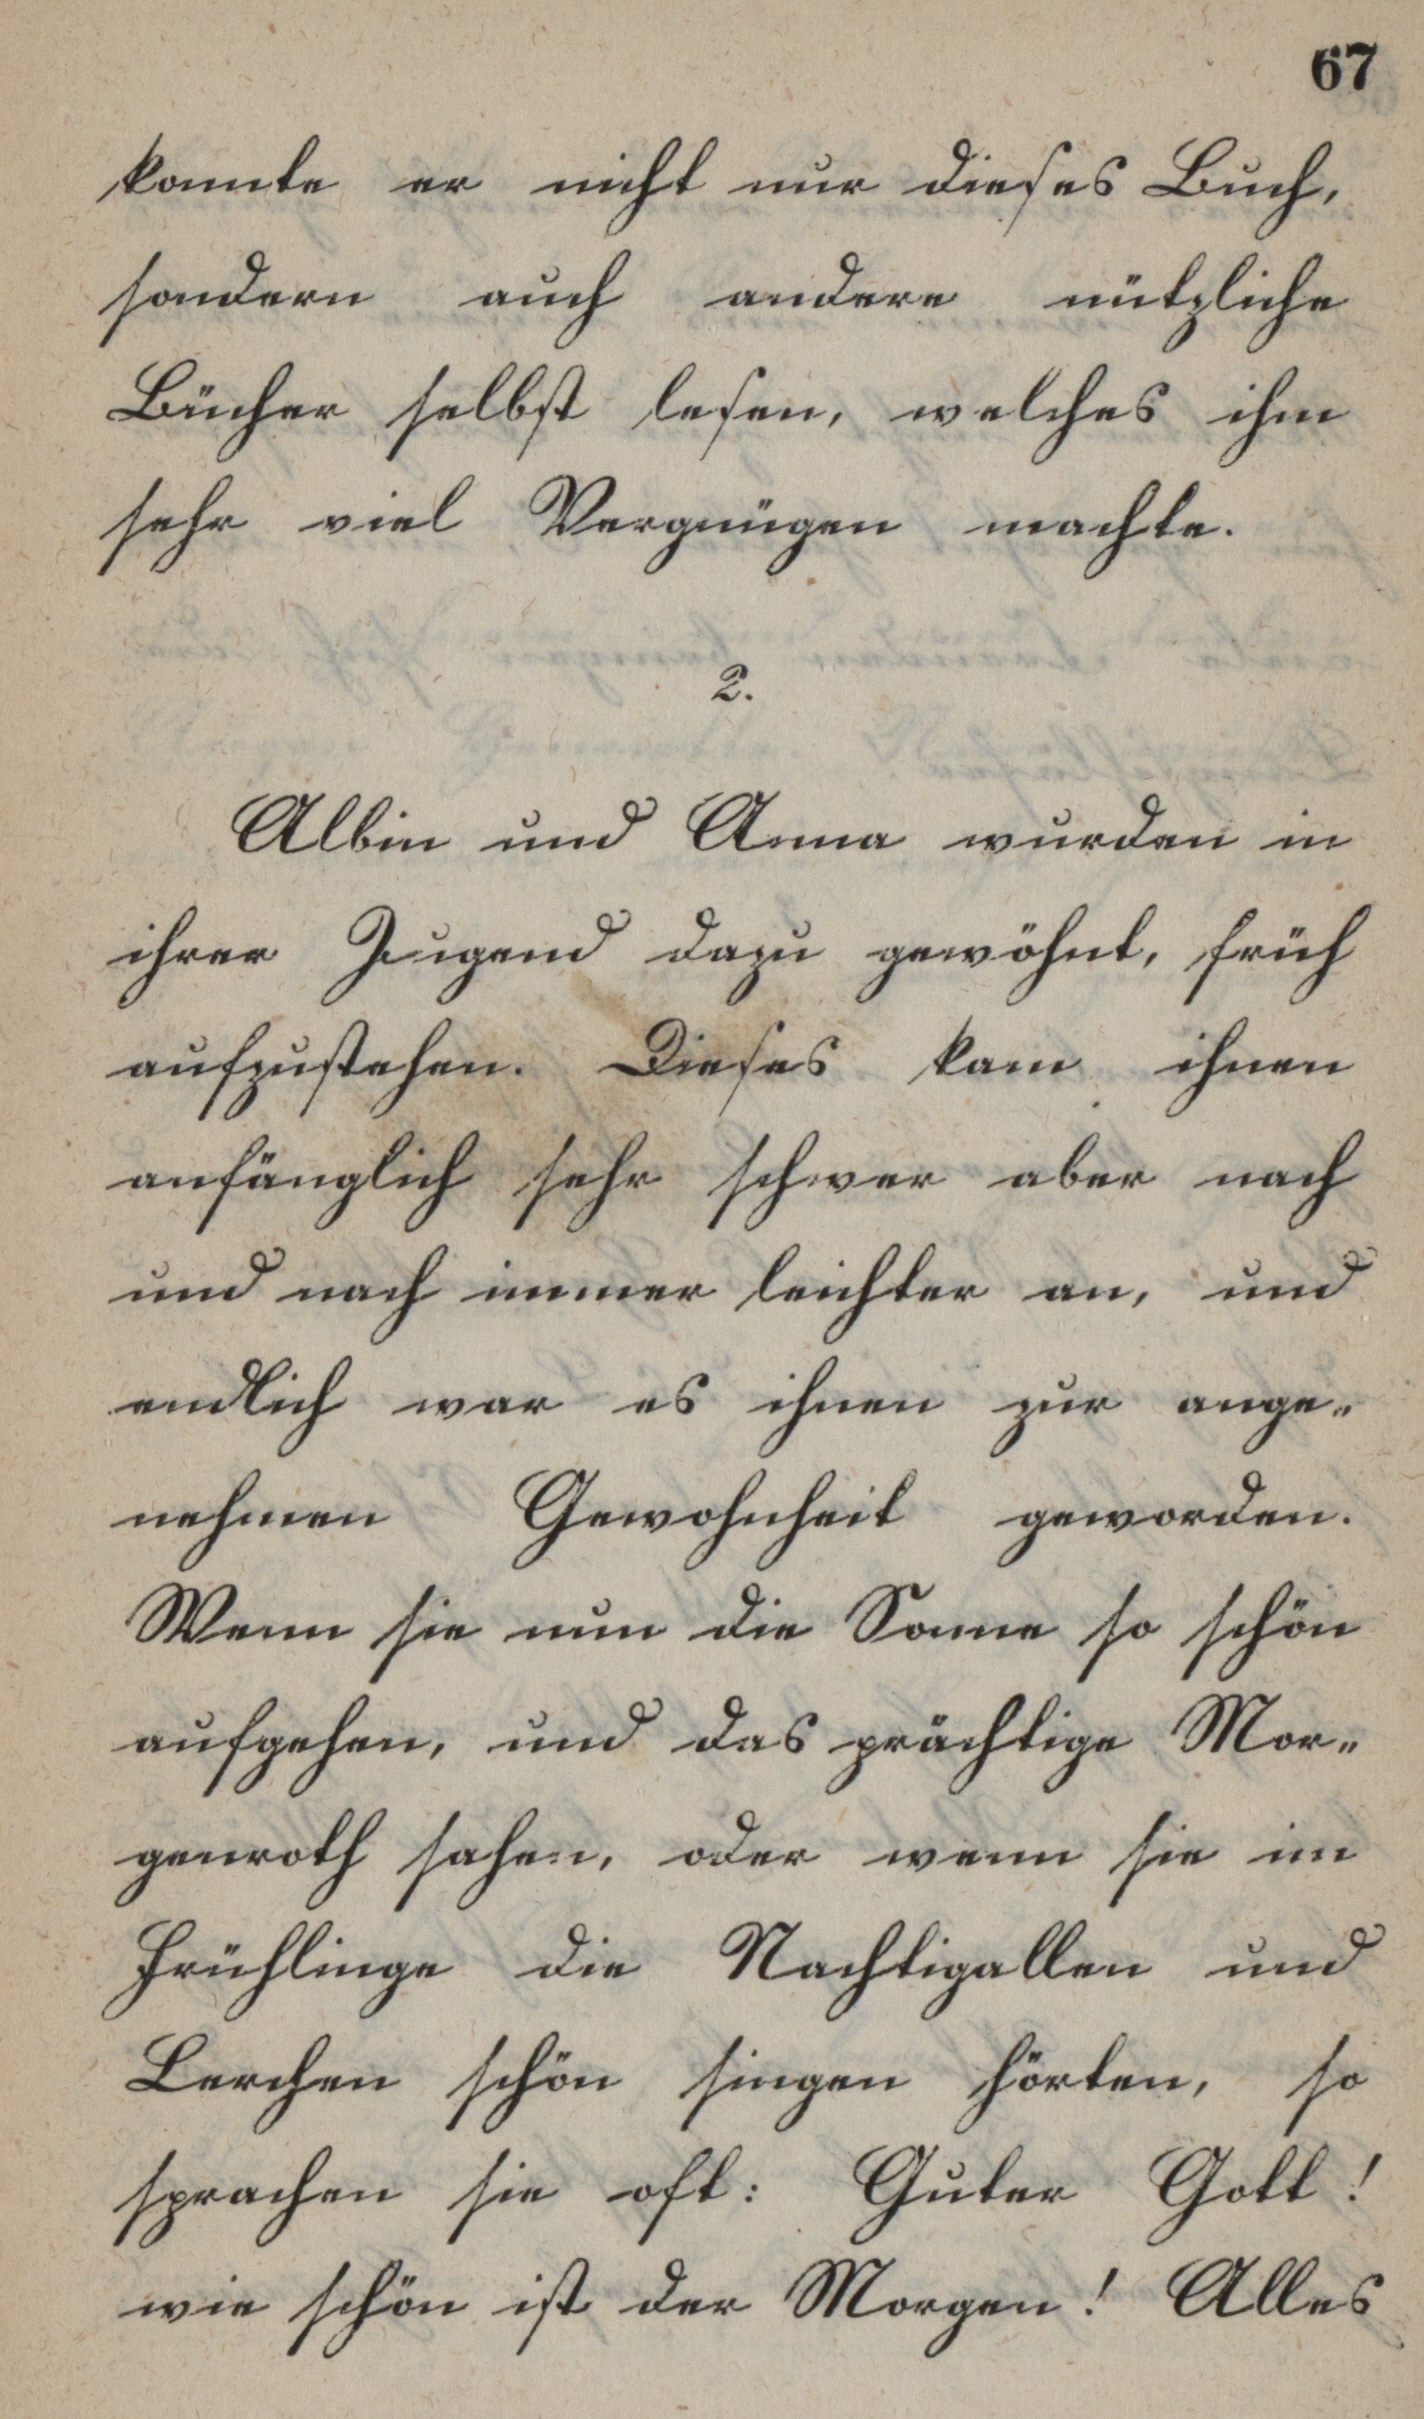 67
konnte er nicht nur dieses Buch,
sondern auch andere nützliche
Bücher selbst lesen, welches ihm
sehr viel Vergnügen machte.
2.
Albin und Anna wurden in
ihrer Jugend dazu gewöhnt, früh
aufzustehen. Dieses kam ihnen
anfänglich sehr schwer aber nach
und nach immer leichter an, und
endlich war es ihnen zur ange„
nehmen Gewohnheit geworden.
Wenn sie nun die Sonne so schön
aufgehen, und das prächtige Mor„
genroth sahen, oder wenn sie im
Frühlinge die Nachtigallen und
Lerchen schön singen hörten, so
sprachen sie oft: Guter Gott!
wie schön ist der Morgen! Alles